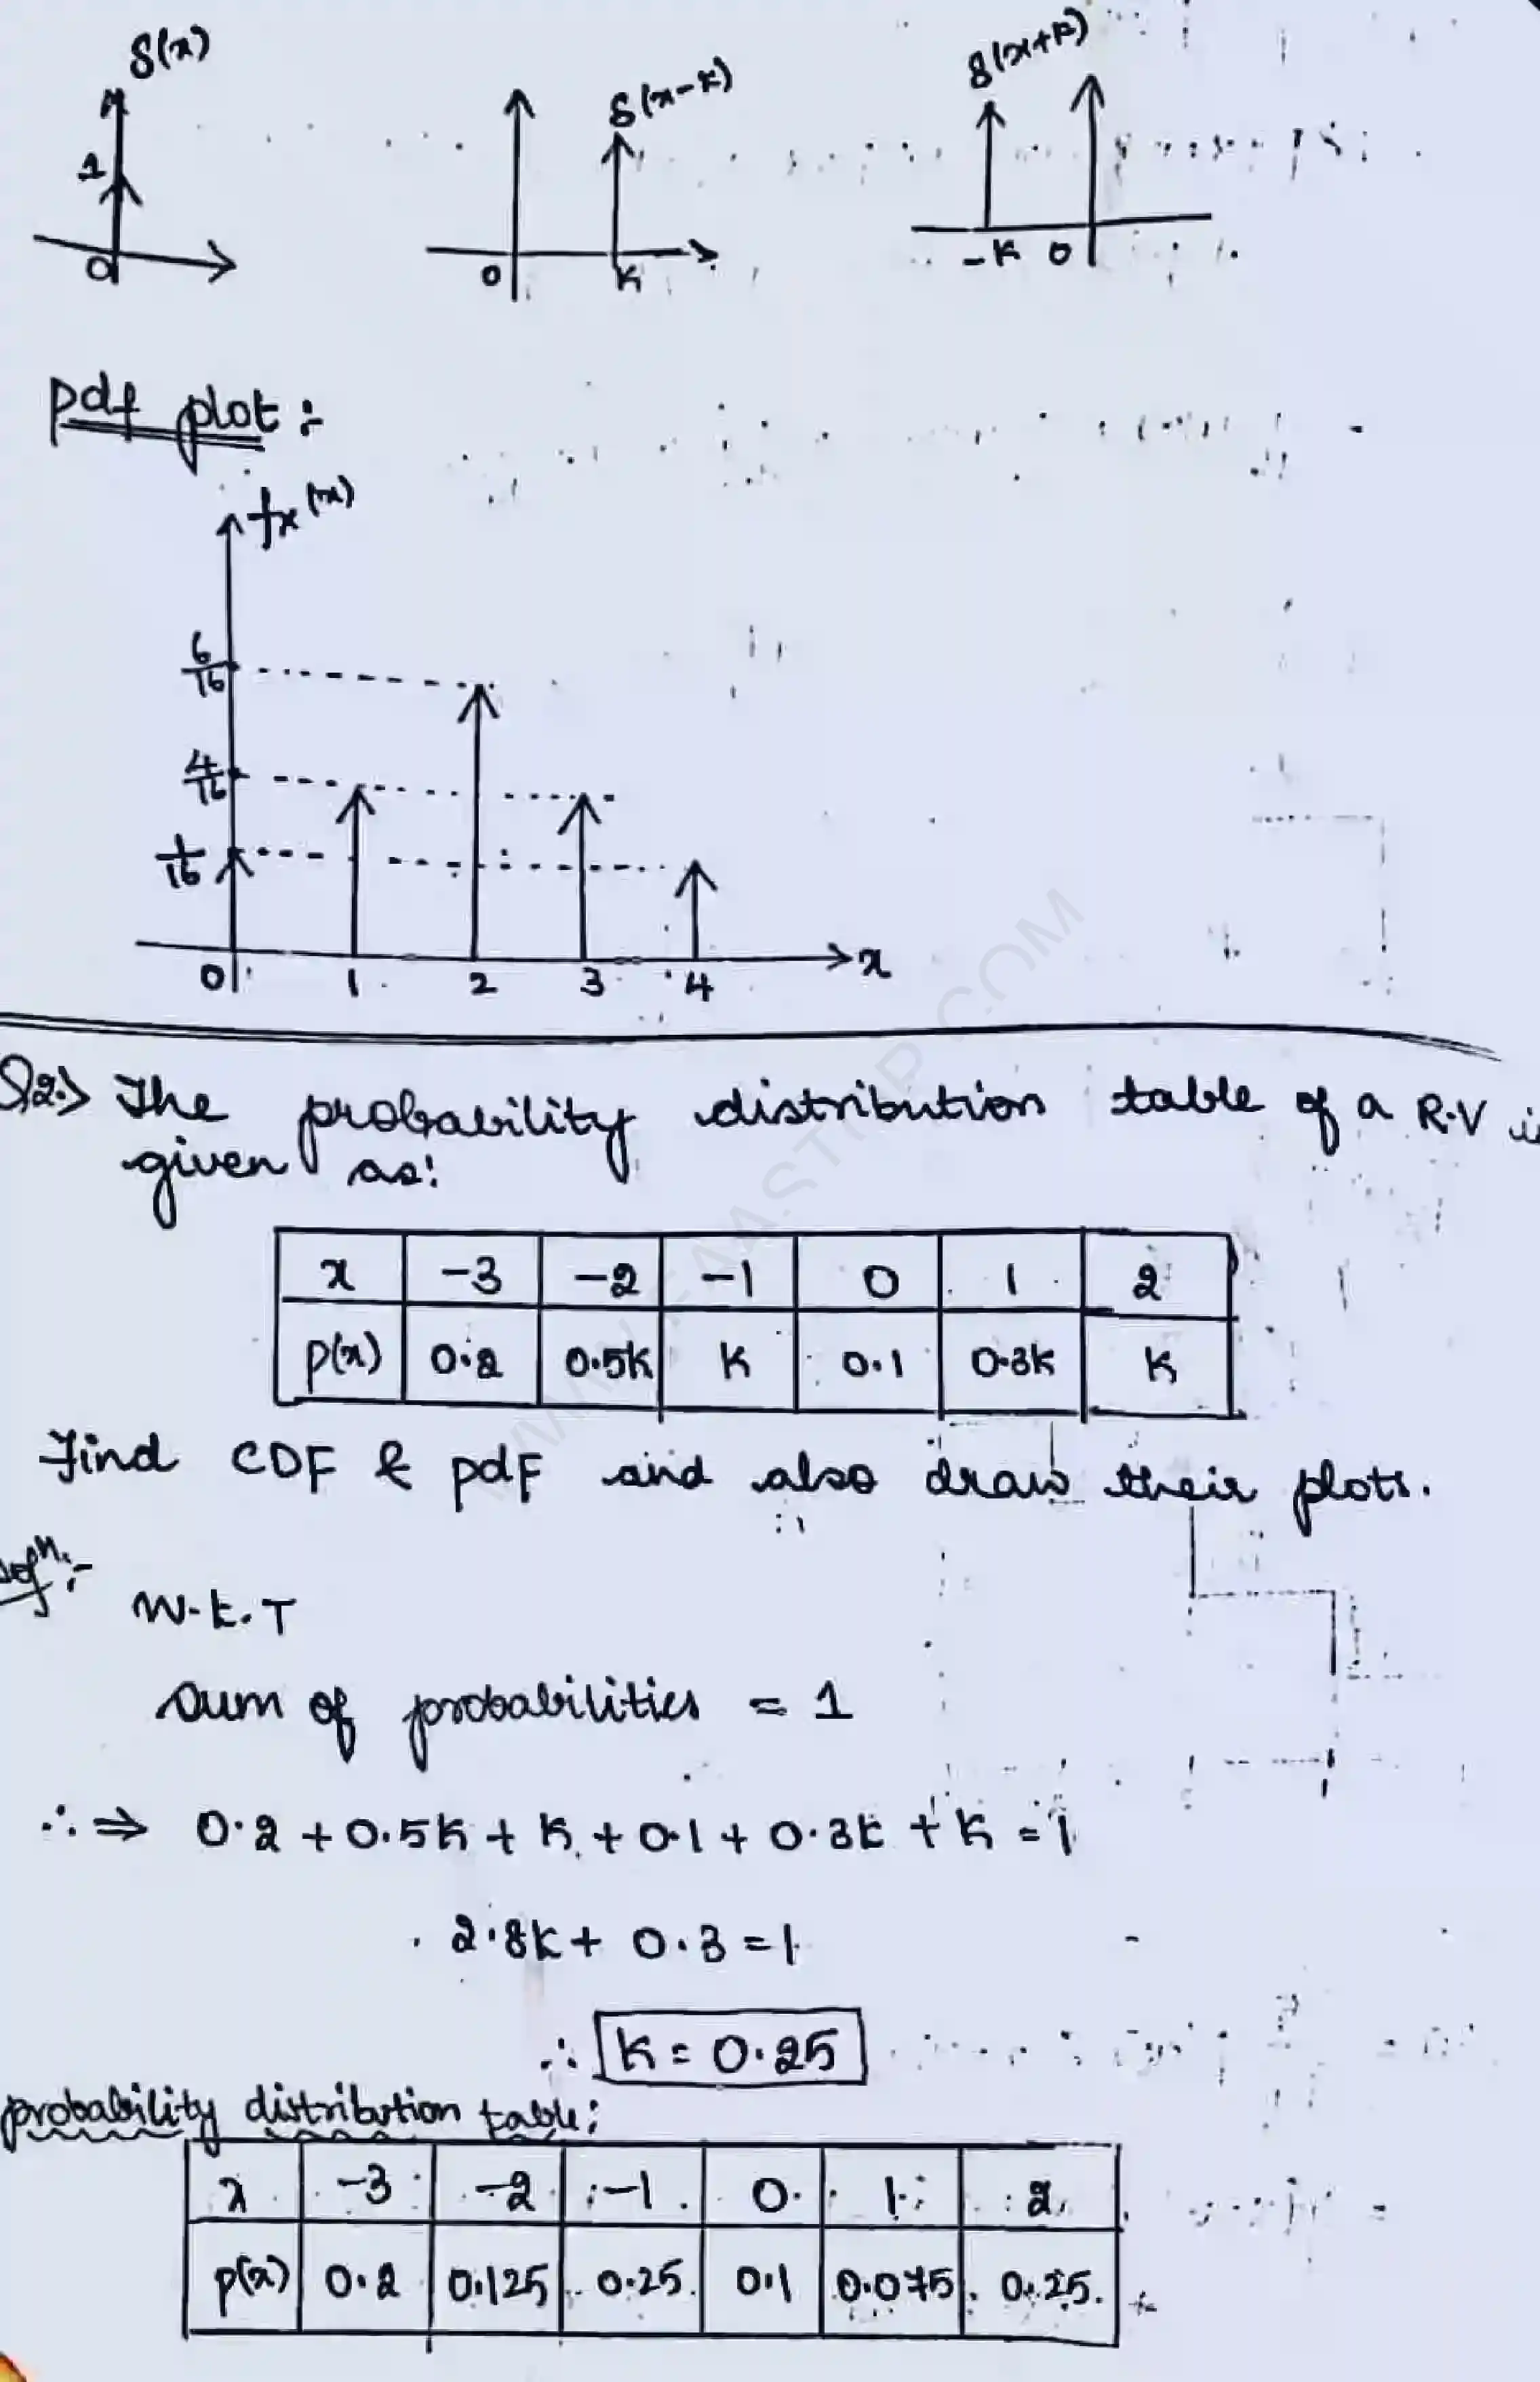 δ(x)
δ(x-k)
δ(x+k)
1
0
0
k
-k 0
pdf plot :-
fx(x)
6/16
4/16
1/16
0 1 2 3 4 x
Q2.> The probability distribution table of a R.V
given as:
x -3 -2 -1 0 1 2
p(x) 0.2 0.5k k 0.1 0.3k k
Find CDF & pdf and also draw their plots.
Solⁿ:-
W.k.T
Sum of probabilities = 1
∴ ⇒ 0.2 + 0.5k + k + 0.1 + 0.3k + k = 1
2.8k + 0.3 = 1
∴ k = 0.25
probability distribution table:
x -3 -2 -1 0 1 2
p(x) 0.2 0.125 0.25 0.1 0.075 0.25